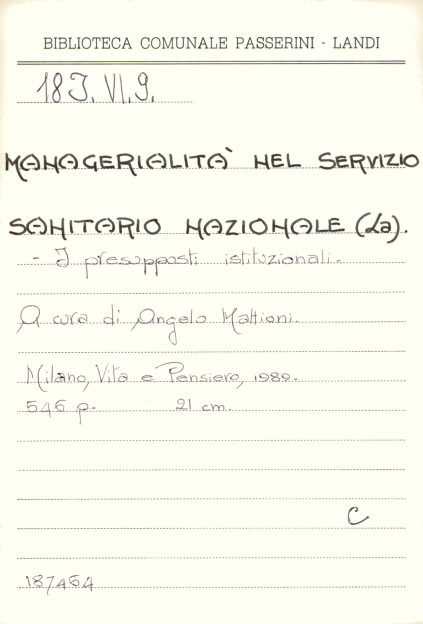 BIBLIOTECA COMUNALE PASSERINI - LANDI
18 I. VI. 9.
MANAGERIALITA' NEL SERVIZIO
SANITARIO NAZIONALE (La).
- I presupposti istituzionali.
A cura di Angelo Mattioni.
Milano, Vita e Pensiero, 1989.
546 p. 21 cm.
C
187464